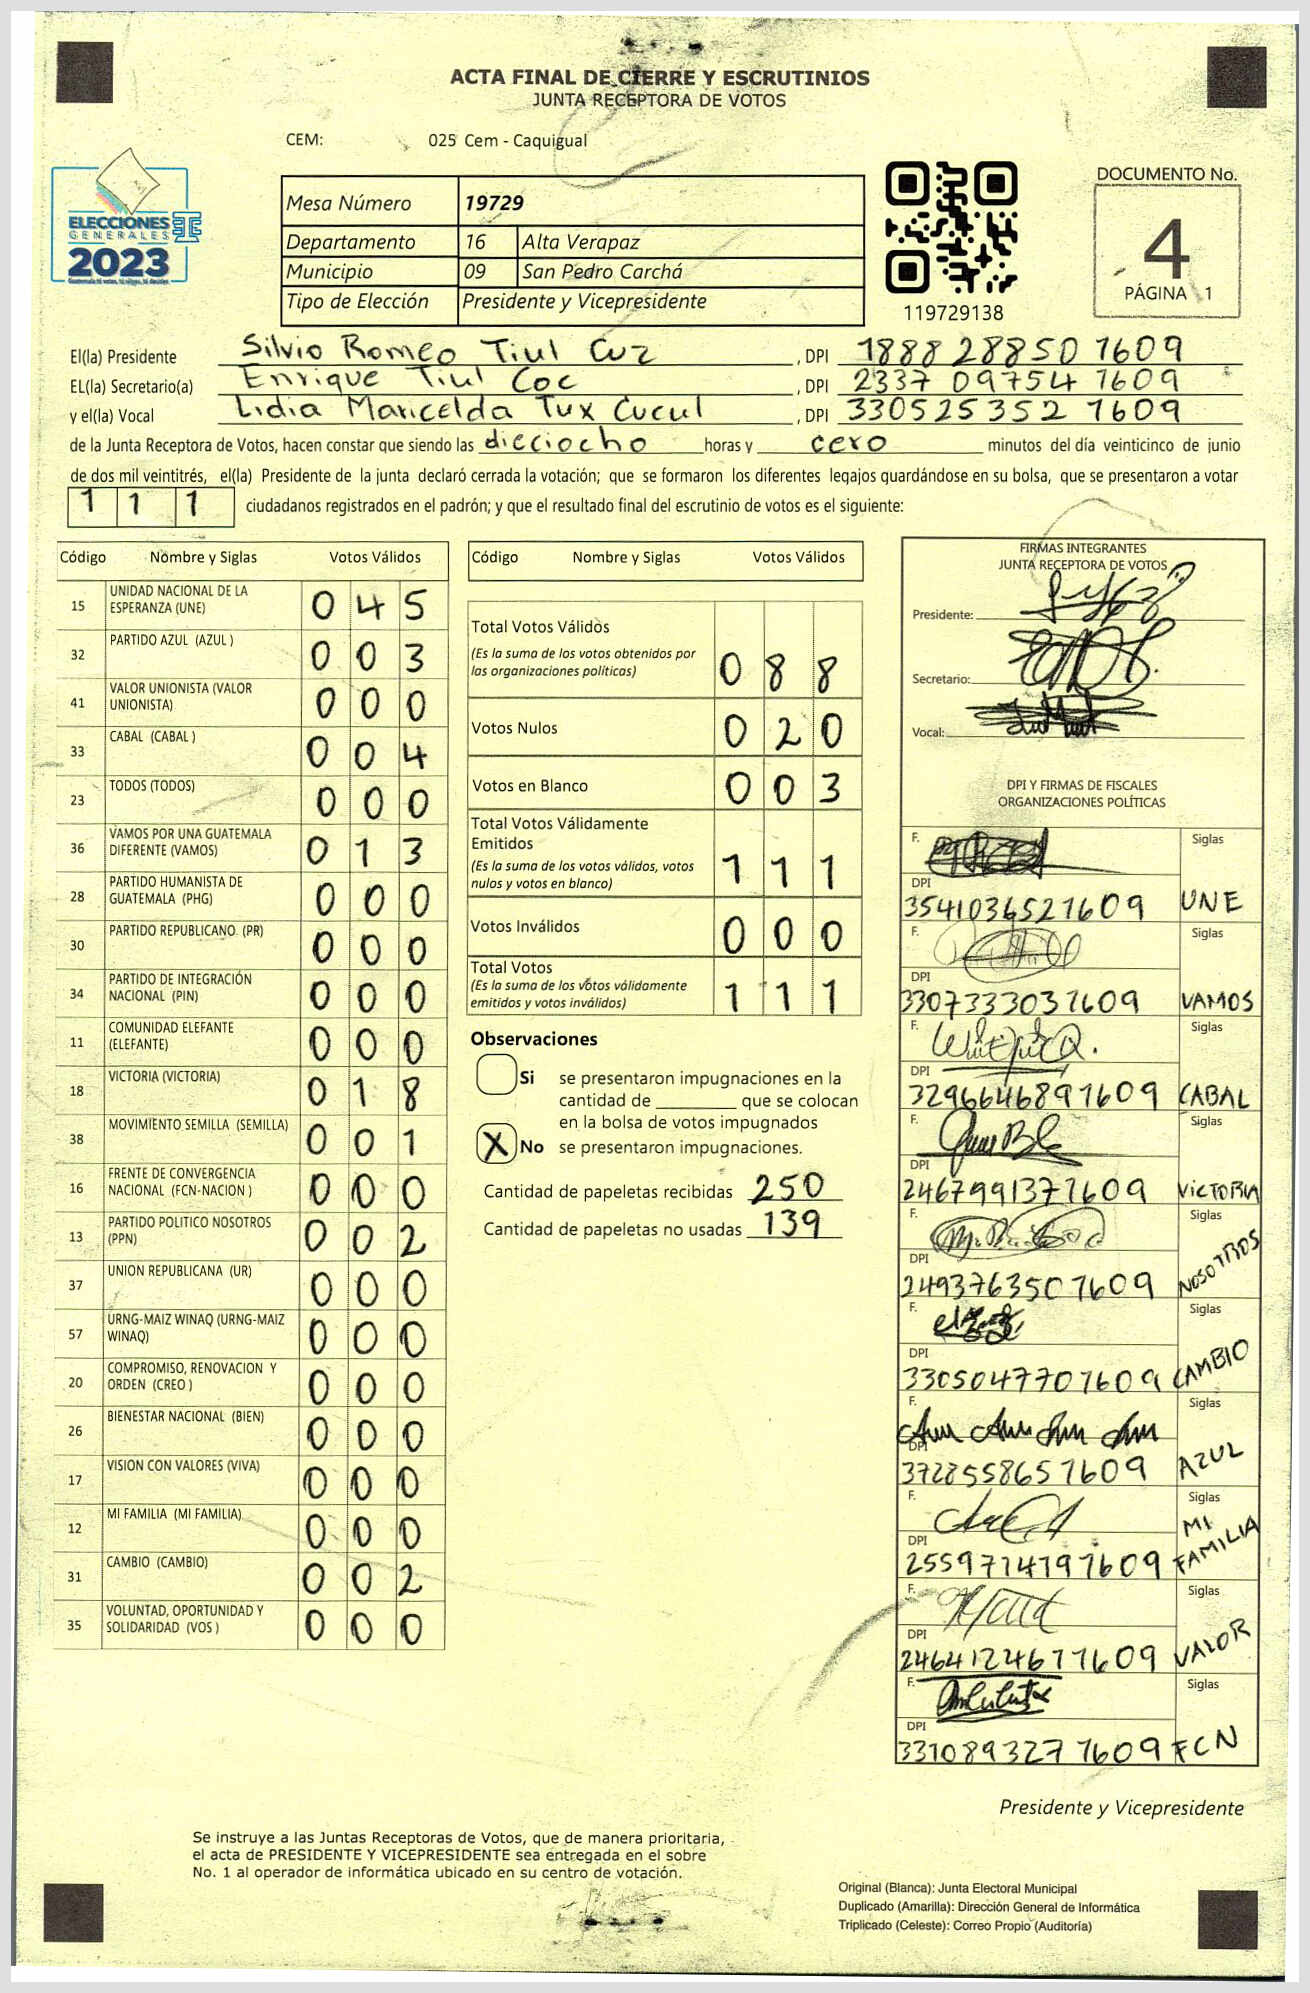 ACTA FINAL DE CIERRE Y ESCRUTINIOS
JUNTA RECEPTORA DE VOTOS
CEM: 025 Cem - Caquigual
ELECCIONES
GENERALES
2023
Mesa Número 19729
Departamento 16 Alta Verapaz
Municipio 09 San Pedro Carchá
Tipo de Elección Presidente y Vicepresidente
119729138
DOCUMENTO No.
4
PÁGINA 1
El(la) Presidente Silvio Romeo Tiul Cuz , DPI 1888 28850 1609
EL(la) Secretario(a) Enrique Tiul Coc , DPI 2337 09754 1609
y el(la) Vocal Lidia Maricelda Tux Cucul , DPI 330525352 1609
de la Junta Receptora de Votos, hacen constar que siendo las dieciocho horas y cero minutos del día veinticinco de junio
de dos mil veintitrés, el(la) Presidente de la junta declaró cerrada la votación; que se formaron los diferentes legajos guardándose en su bolsa, que se presentaron a votar
1 1 1 ciudadanos registrados en el padrón; y que el resultado final del escrutinio de votos es el siguiente:
Código Nombre y Siglas Votos Válidos
15 UNIDAD NACIONAL DE LA ESPERANZA (UNE) 0 4 5
32 PARTIDO AZUL (AZUL ) 0 0 3
41 VALOR UNIONISTA (VALOR UNIONISTA) 0 0 0
33 CABAL (CABAL ) 0 0 4
23 TODOS (TODOS) 0 0 0
36 VAMOS POR UNA GUATEMALA DIFERENTE (VAMOS) 0 1 3
28 PARTIDO HUMANISTA DE GUATEMALA (PHG) 0 0 0
30 PARTIDO REPUBLICANO (PR) 0 0 0
34 PARTIDO DE INTEGRACIÓN NACIONAL (PIN) 0 0 0
11 COMUNIDAD ELEFANTE (ELEFANTE) 0 0 0
18 VICTORIA (VICTORIA) 0 1 8
38 MOVIMIENTO SEMILLA (SEMILLA) 0 0 1
16 FRENTE DE CONVERGENCIA NACIONAL (FCN-NACION ) 0 0 0
13 PARTIDO POLITICO NOSOTROS (PPN) 0 0 2
37 UNION REPUBLICANA (UR) 0 0 0
57 URNG-MAIZ WINAQ (URNG-MAIZ WINAQ) 0 0 0
20 COMPROMISO, RENOVACION Y ORDEN (CREO ) 0 0 0
26 BIENESTAR NACIONAL (BIEN) 0 0 0
17 VISION CON VALORES (VIVA) 0 0 0
12 MI FAMILIA (MI FAMILIA) 0 0 0
31 CAMBIO (CAMBIO) 0 0 2
35 VOLUNTAD, OPORTUNIDAD Y SOLIDARIDAD (VOS ) 0 0 0
Código Nombre y Siglas Votos Válidos
Total Votos Válidos
(Es la suma de los votos obtenidos por
las organizaciones políticas) 0 8 8
Votos Nulos 0 2 0
Votos en Blanco 0 0 3
Total Votos Válidamente
Emitidos
(Es la suma de los votos válidos, votos
nulos y votos en blanco) 1 1 1
Votos Inválidos 0 0 0
Total Votos
(Es la suma de los votos válidamente
emitidos y votos inválidos) 1 1 1
Observaciones
Si se presentaron impugnaciones en la
cantidad de ________ que se colocan
en la bolsa de votos impugnados
X No se presentaron impugnaciones.
Cantidad de papeletas recibidas 250
Cantidad de papeletas no usadas 139
FIRMAS INTEGRANTES
JUNTA RECEPTORA DE VOTOS
Presidente:
Secretario:
Vocal:
DPI Y FIRMAS DE FISCALES
ORGANIZACIONES POLÍTICAS
F. Siglas
DPI
3541036521609 UNE
F. Siglas
DPI
3307333031609 VAMOS
F. Siglas
DPI
3296646891609 CABAL
F. Siglas
DPI
2467991371609 VICTORIA
F. Siglas
DPI
2493763501609 NOSOTROS
F. Siglas
DPI
3305047701609 CAMBIO
F. Siglas
DPI
3728558651609 AZUL
F. Siglas
DPI
2559714191609 MI FAMILIA
F. Siglas
DPI
2464124671609 VALOR
F. Siglas
DPI
331089327 1609 FCN
Presidente y Vicepresidente
Se instruye a las Juntas Receptoras de Votos, que de manera prioritaria,
el acta de PRESIDENTE Y VICEPRESIDENTE sea entregada en el sobre
No. 1 al operador de informática ubicado en su centro de votación.
Original (Blanca): Junta Electoral Municipal
Duplicado (Amarilla): Dirección General de Informática
Triplicado (Celeste): Correo Propio (Auditoría)